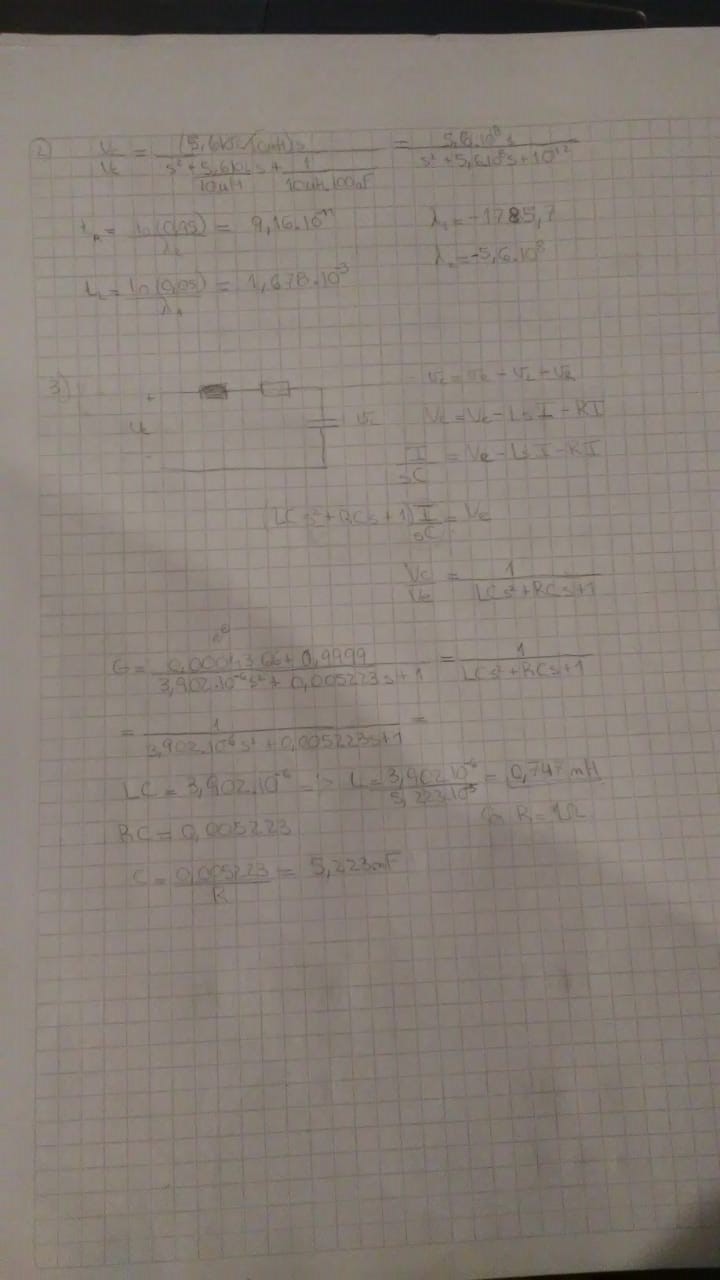 2) Vc/Ve = (5,6kΩ/10uH)s / (s² + 5,6kΩ/10uH s + 1/(10uH.100nF)) = 5,6.10⁸s / (s² + 5,6.10⁸s + 10¹²)
= ln(0,95)/λ₂ = 9,16.10¹¹ λ₁ = -1785,7
= ln(0,05)/λ₁ = 1,678.10⁻³ λ₂ = -5,6.10⁸
3) + - Vc = Ve - VL - VR
Vc = Ve - LsI - RI
I/sC = Ve - LsI - RI
(LCs² + RCs + 1) I/sC = Ve
Vc/Ve = 1/(LCs² + RCs + 1)
G = + 0,9999 / (3,902.10⁻⁶s² + 0,005223s + 1) = 1/(LCs² + RCs + 1)
= 1/(3,902.10⁻⁶s² + 0,005223s + 1) =
LC = 3,902.10⁻⁶ => L = 3,902.10⁻⁶/5,223.10⁻³ = 0,747 mH
RC = 0,005223 R = 1Ω
C = 0,005223/R = 5,223mF